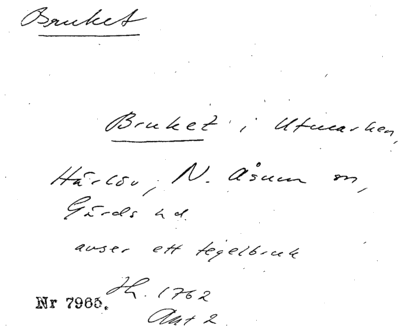 Bruket
Bruket i Utmarken,
Härlöv, N. Åsum sn,
Gärds hd.
avser ett tegelbruk
Jh. 1762
Akt 2
Nr 7965.